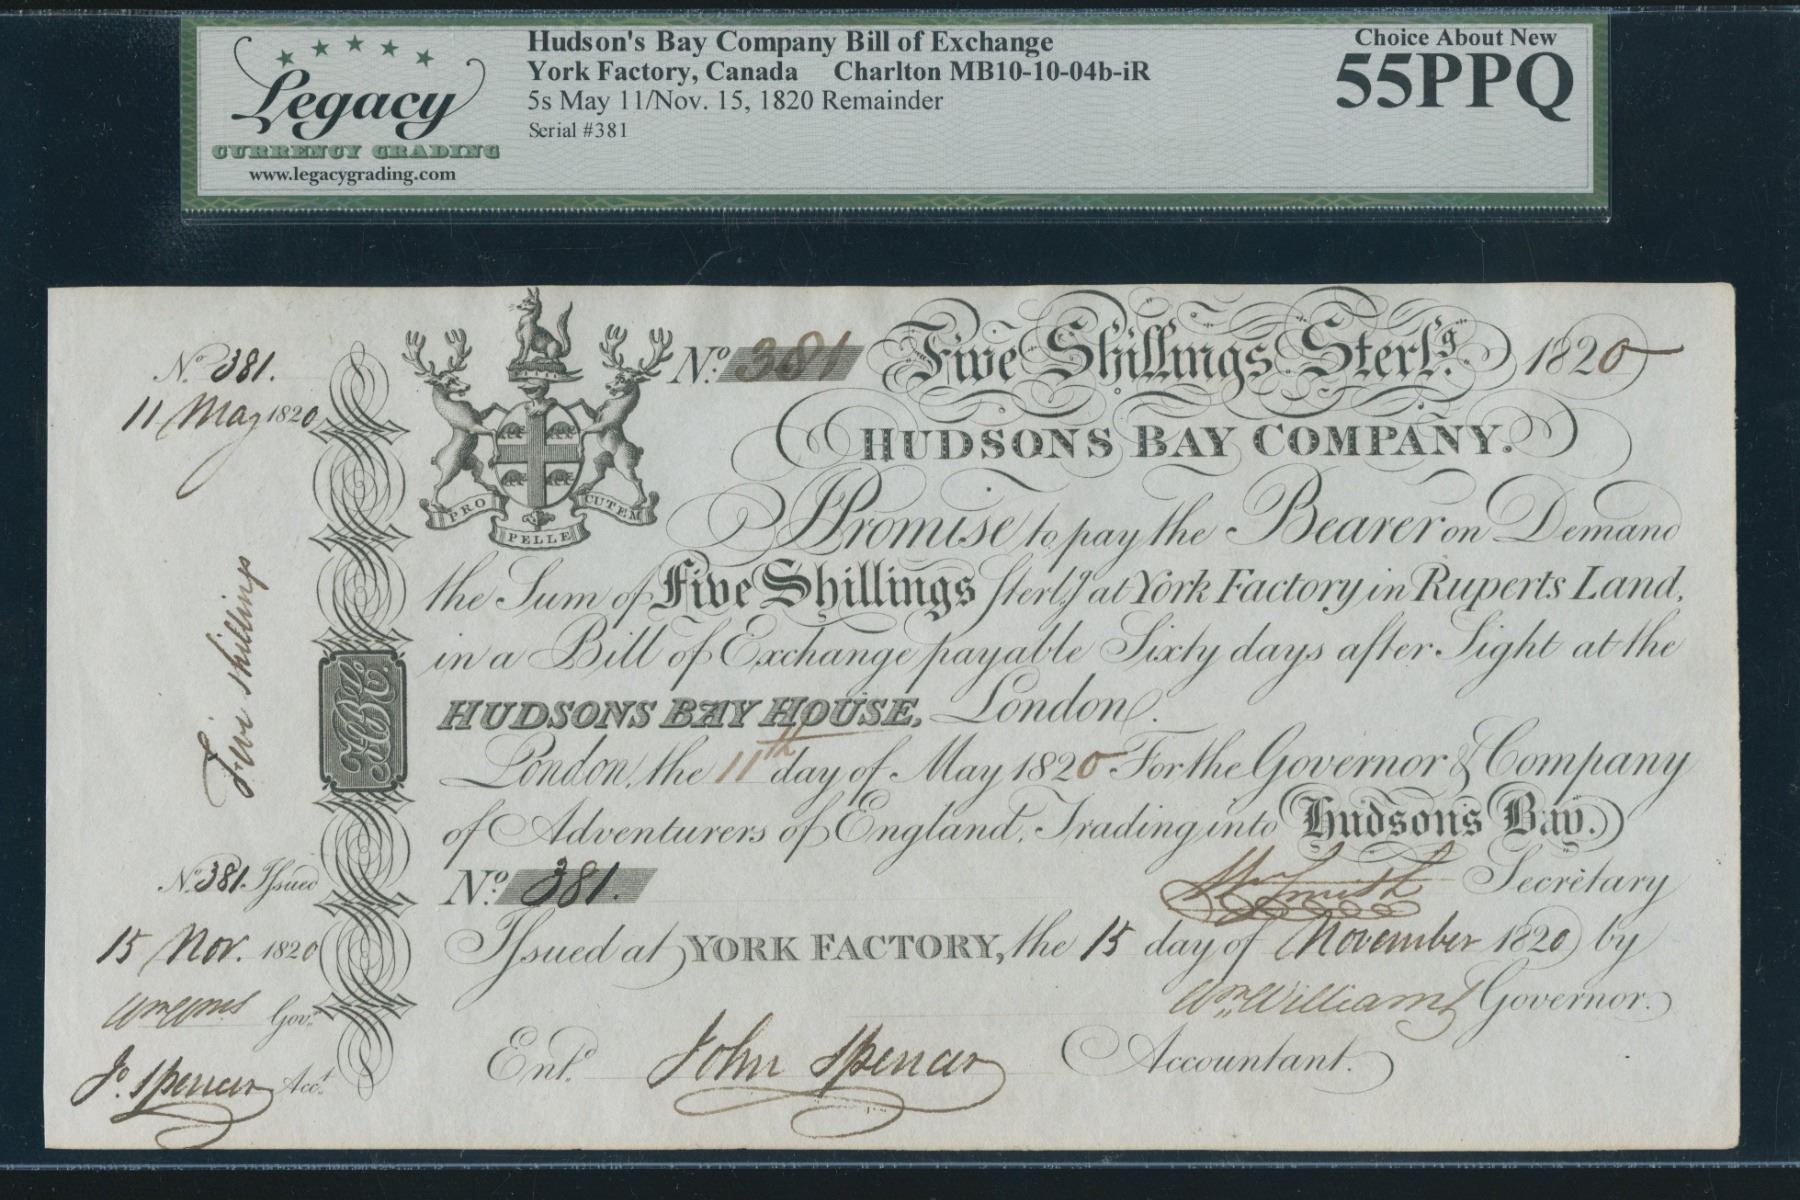 Legacy
CURRENCY GRADING
www.legacygrading.com
Hudson's Bay Company Bill of Exchange
York Factory, Canada Charlton MB10-10-04b-iR
5s May 11/Nov. 15, 1820 Remainder
Serial #381
Choice About New
55PPQ
No. 381.
11 May 1820
Five Shillings
HBC
No 381. Issued
15 Nov. 1820
Wm Wms Govr.
Jo. Spencer Acct.
PRO PELLE CUTEM
No. 381 Five Shillings Sterlg. 1820
HUDSONS BAY COMPANY.
I Promise to pay the Bearer on Demand
the Sum of Five Shillings Sterlg. at York Factory in Ruperts Land,
in a Bill of Exchange payable Sixty days after Sight at the
HUDSONS BAY HOUSE, London.
London, the 11th day of May 1820 For the Governor & Company
of Adventurers of England, Trading into Hudson's Bay.
No. 381. Wm Smith Secretary
Issued at YORK FACTORY, the 15 day of November 1820 by
Wm. Williams Governor.
Entd. John Spencer Accountant.